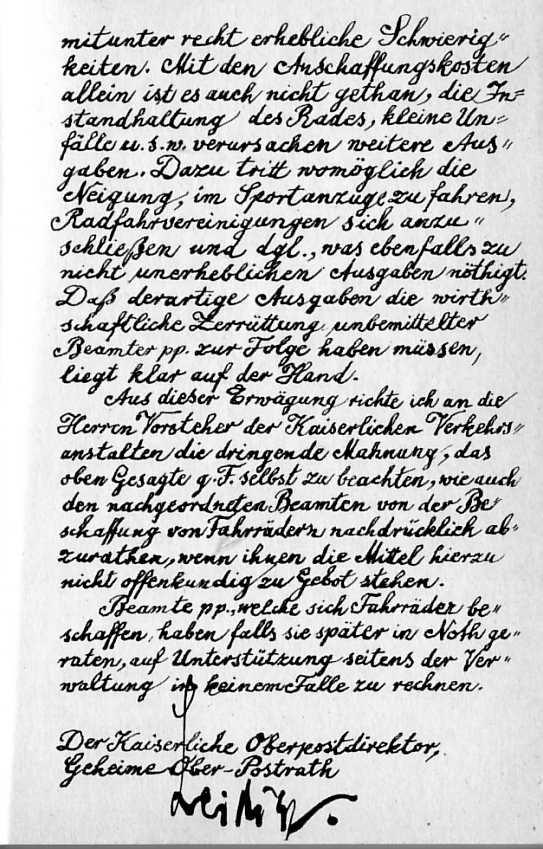 mitunter recht erhebliche Schwierig"
keiten. Mit den Anschaffungskosten
allein ist es auch nicht gethan, die In=
standhaltung des Rades, kleine Un=
fälle u. s. w. verursachen weitere Aus"
gaben. Dazu tritt womöglich die
Neigung, im Sportanzuge zu fahren,
Radfahrvereinigungen sich anzu"
schließen und dgl., was ebenfalls zu
nicht unerheblichen Ausgaben nöthigt.
Daß derartige Ausgaben die wirth"
schaftliche Zerrüttung unbemittelter
Beamter pp. zur Folge haben müssen,
liegt klar auf der Hand.
Aus dieser Erwägung richte ich an die
Herren Vorsteher der Kaiserlichen Verkehrs"
anstalten die dringende Mahnung, das
oben Gesagte g. F. selbst zu beachten, wie auch
den nachgeordneten Beamten von der Be"
schaffung von Fahrrädern nachdrücklich ab"
zurathen, wenn ihnen die Mittel hierzu
nicht offenkundig zu Gebot stehen.
Beamte pp., welche sich Fahrräder be"
schaffen, haben falls sie später in Noth ge"
raten, auf Unterstützung seitens der Ver"
waltung in keinem Falle zu rechnen.
Der Kaiserliche Oberpostdirektor,
Geheime Ober-Postrath